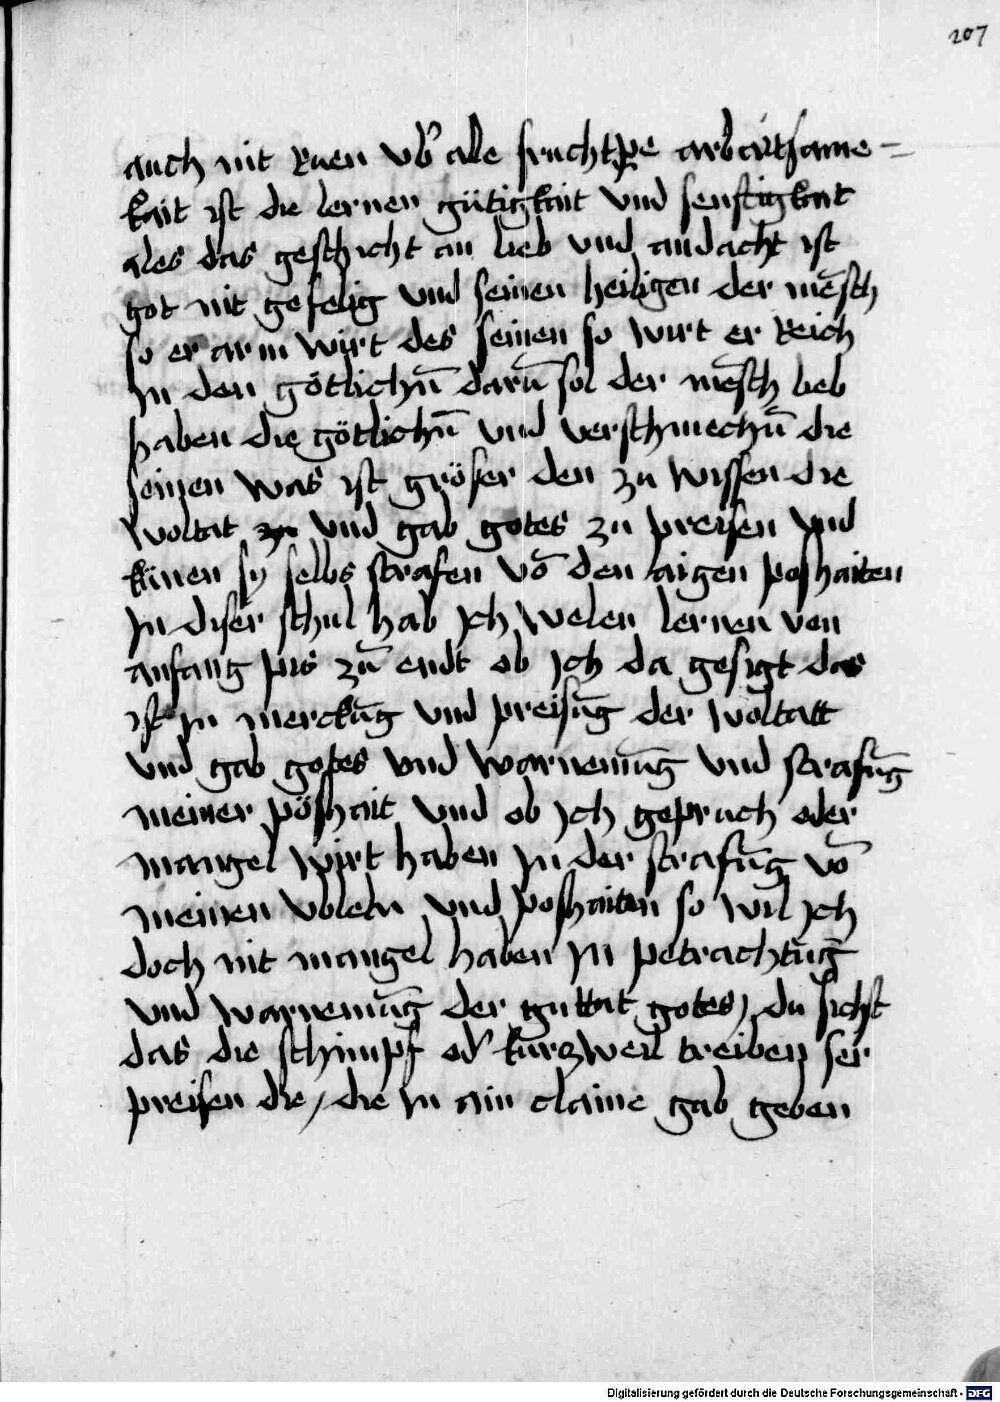 207
auch nit Ruen vb' ale fruchtpe arbaitsame=
kait ist die lernen gütigkait vnd senftigkait
ales das geschicht an lieb vnd andacht ist
got nit gefelig vnd seinen heiligen der mēsch
so er arm wirt des seinen so wirt er Reich
Jn den götlichn̄ darū sol der mēsch lieb
haben die götlichn̄ vnd verschmechn̄ die
seinen was ist gröser den zu wissen die
woltat vnd gab gotes zu preisen vnd
künen sy selbs strafen vō den aigen poshaiten
Jn diser schul hab Jch welen lernen von
anfang pis zū endt ob Jch da gesigt das
ist Jn merckūg vnd preisūg der woltatt
vnd gab gotes vnd warnemūg vnd strafūg
meiner pöshait vnd ob Jch gepruch oder
mangel wirt haben Jn der strafūg vō
meinen vbleln vnd poshaiten so wil Jch
doch nit mangel haben Jn petrachtūg
vnd warnemūg der guttat gotes / du sichst
das die schimpf od' kurzweil treiben ser
preisen die / die Jn ain claine gab geben
Digitalisierung gefördert durch die Deutsche Forschungsgemeinschaft - DFG